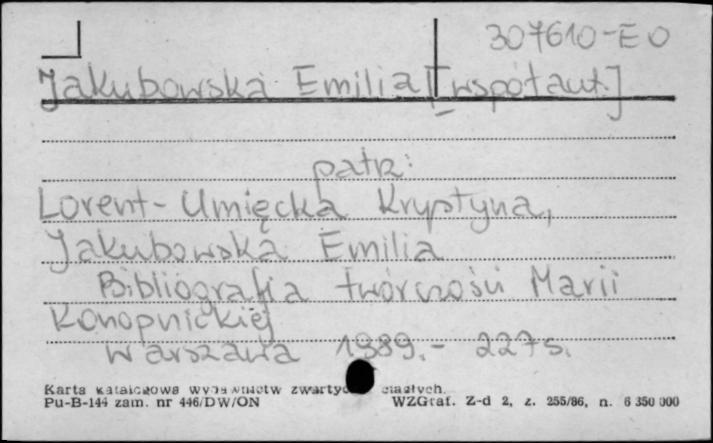 307610-E O
Jakubowska Emilia [współaut.]
patrz:
Lorent-Umięcka Krystyna,
Jakubowska Emilia
Bibliografia twórczości Marii
Konopnickiej
Warszawa 1989.- 227 s.
Karta katalogowa wydawnictw zwartych ciągłych.
Pu-B-144 zam. nr 446/DW/ON WZGraf. Z-d 2, z. 255/86, n. 6 350 000